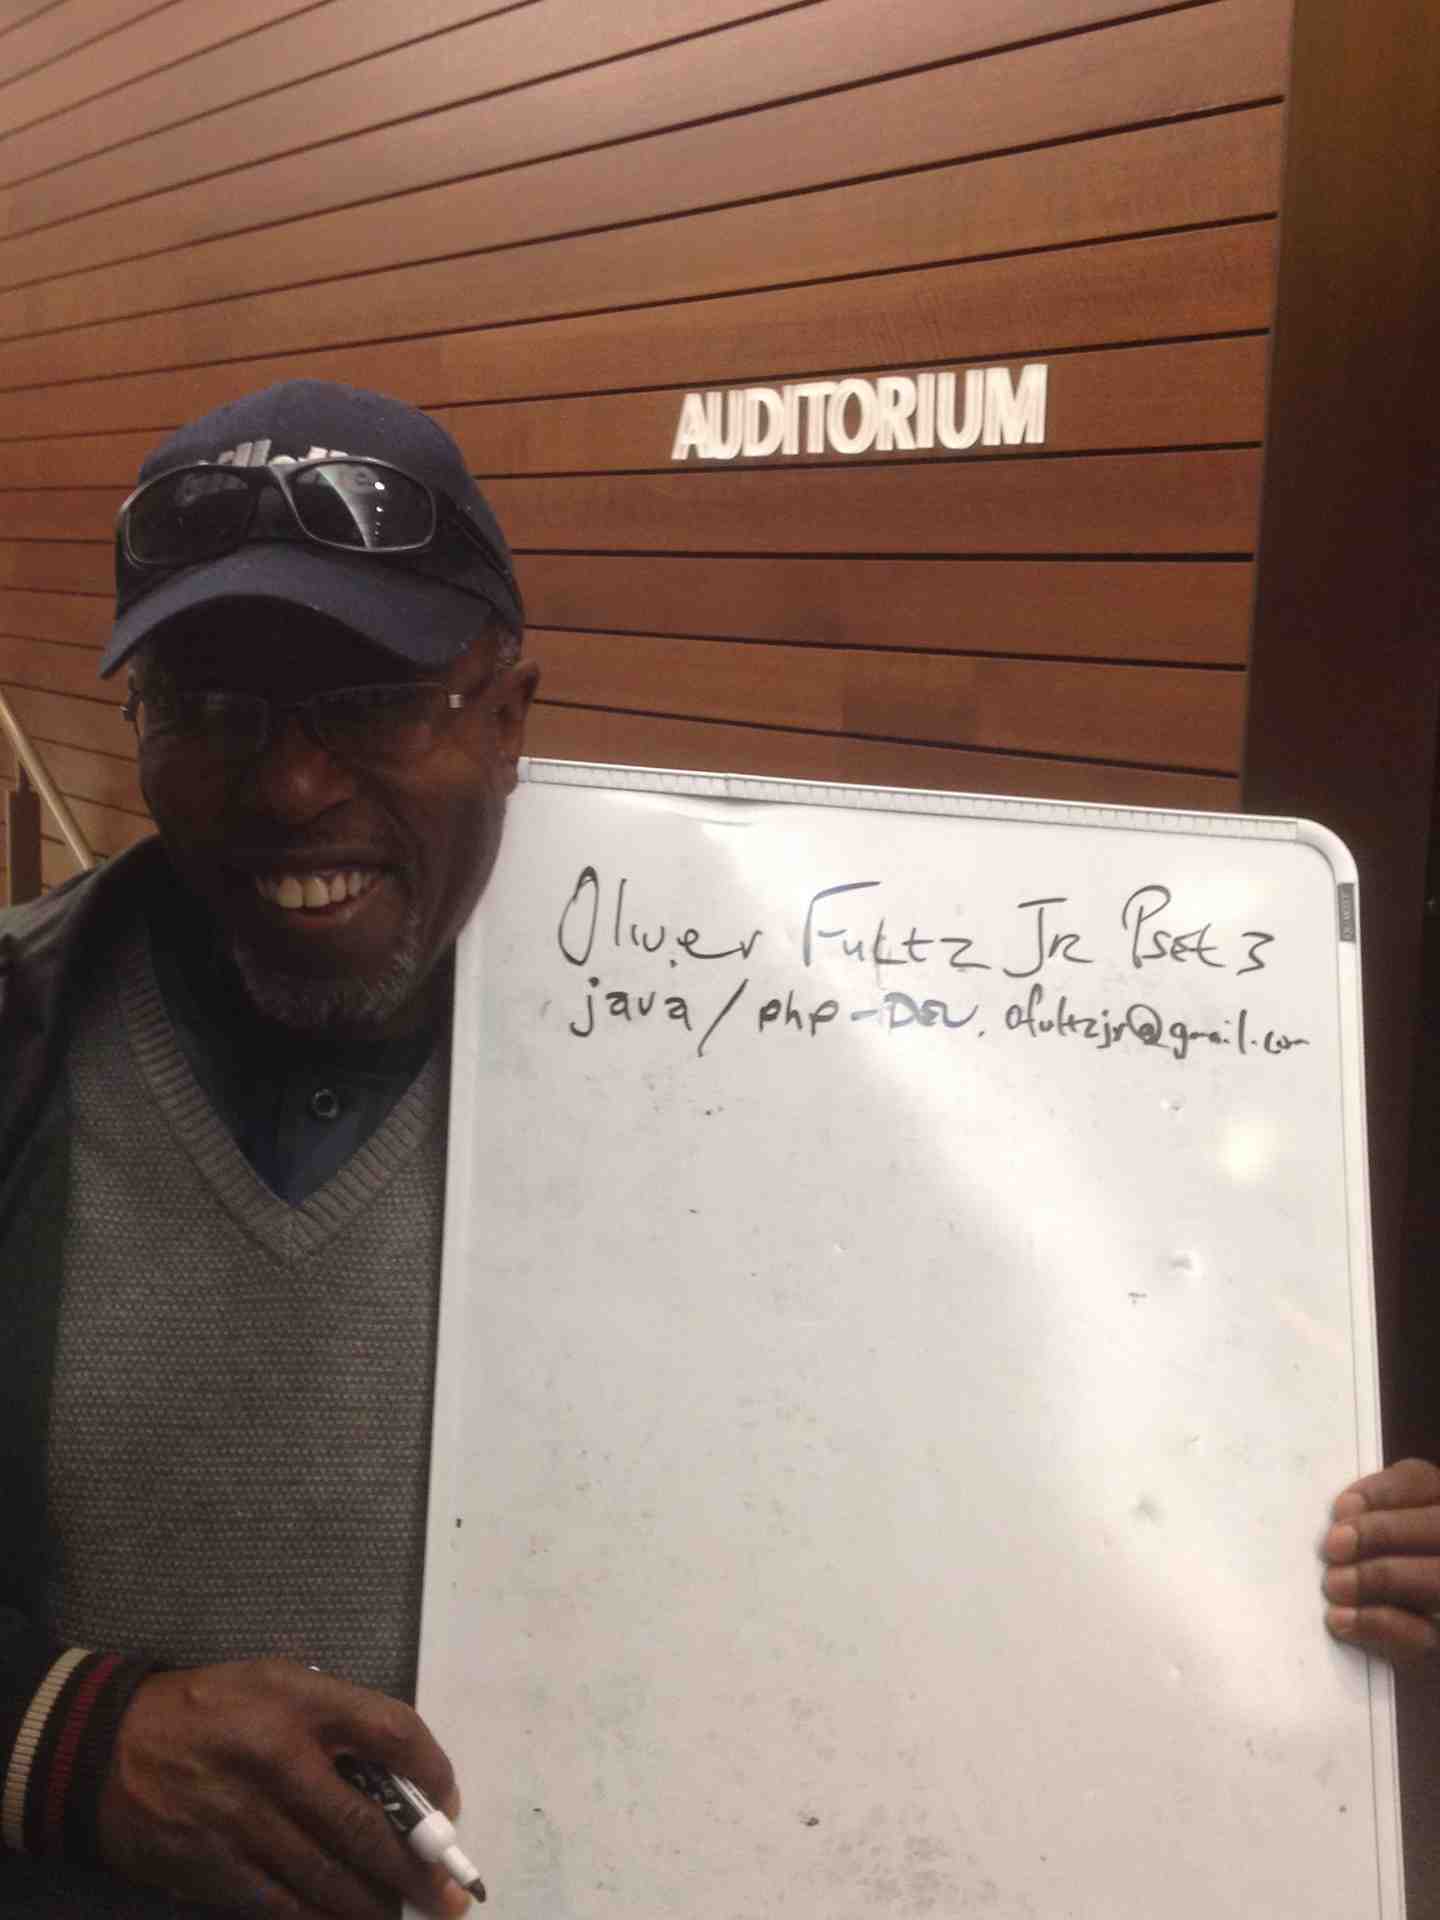 AUDITORIUM
Oliver Fultz Jr Pset 3
java/php-DEV. ofultzjr@gmail.com